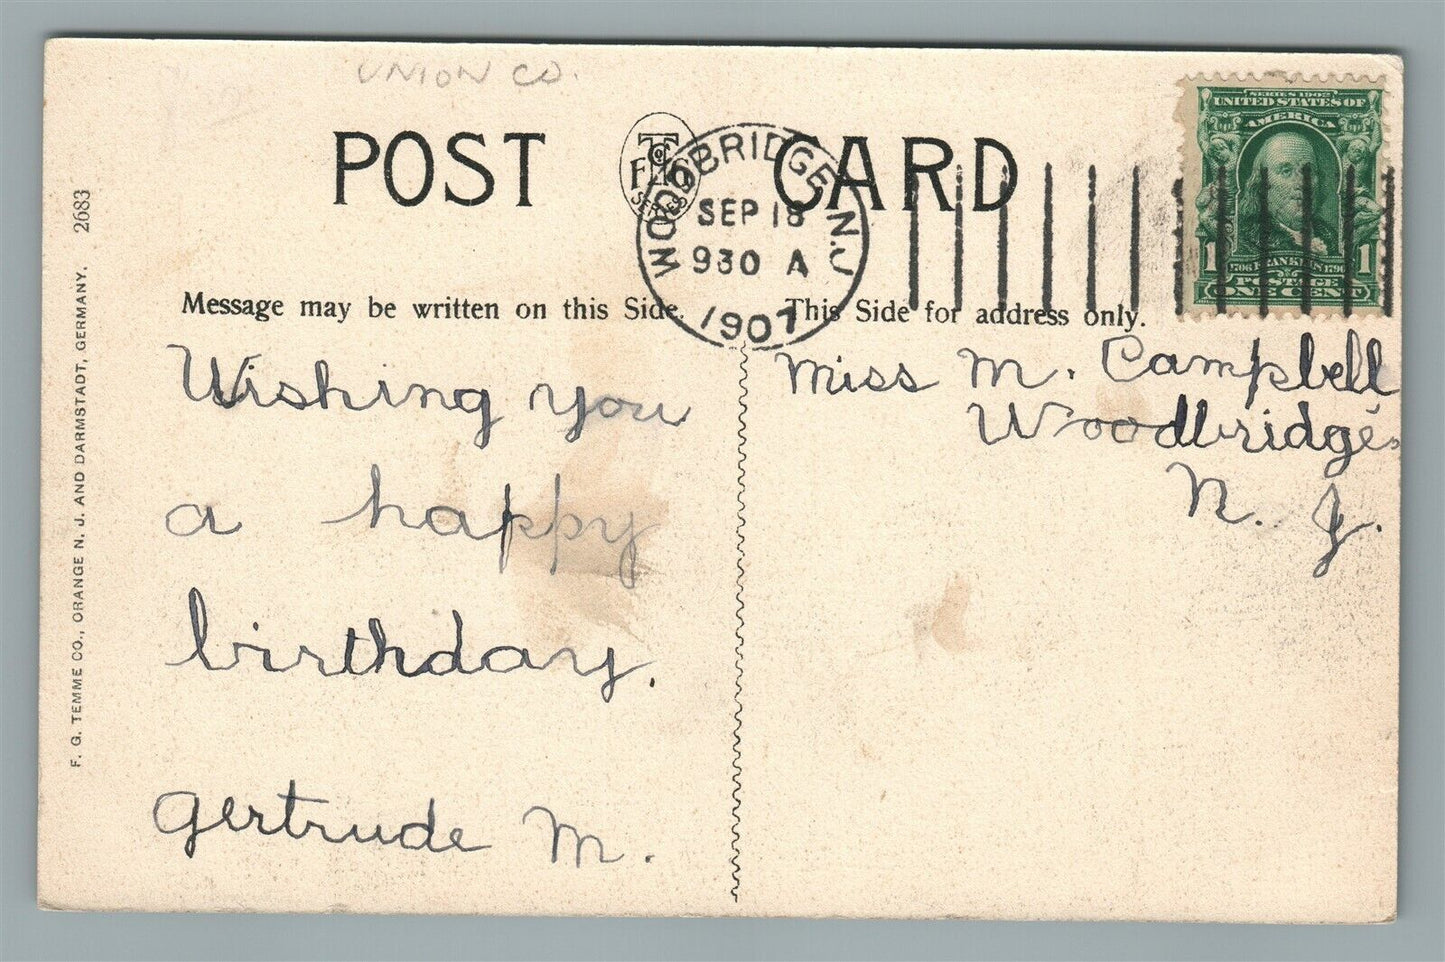 UNION CO.
POST CARD
T Co
F G
SERIES
WOODBRIDGE, N.J.
SEP 18
930 A
1907
SERIES 1902
UNITED STATES OF
AMERICA
1 1
1706 FRANKLIN 1790
POSTAGE
ONE CENT
Message may be written on this Side.
This Side for address only.
Wishing you
a happy
birthday.
Gertrude M.
Miss M. Campbell
Woodbridge
N. J.
F. G. TEMME CO., ORANGE N. J. AND DARMSTADT, GERMANY. 2683